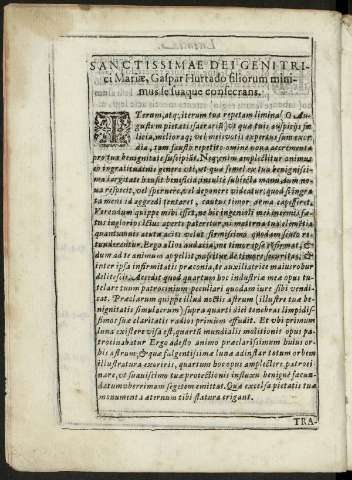 SANCTISSIMAE DEI GENITRI-
ci Mariæ, Gaspar Hurtado filiorum mini-
mus se suaque consecrans.
ITerum, atq; iterum tua repetam limina (O Au-
gustum pietatis sacrariū) vt qua tuis auspicijs fœ-
licia, meliora q; vel meis votis expertus sum exor-
dia, tum fausto repetito omine nova accrementa
pro tua benignitate suscipiāt. Neq; enim amplectitur animus
id ingratitudinis genere ut, vt qua semel ex tua benignissi-
ma largitate hausit beneficia, nisi subsidiæ manu, dum no-
va respicit, vel spernere, vel deponere videatur: quod si ingra-
ta meni id aggredi tentaret, cautus timor arma capesseret.
Verendum quippe mihi esset, ne hic ingenioli mei in ermis fæ-
tus in gloriosius acies aperta pateret, ni materna tua clementia
quantumvis acuta acies velut firmissimo quodam scuto re-
tunderentur. Ergo alios audacia, me timor ipse confirmat, &
dum ad te animum appellit, nosti te de timore securitas, &
inter ipsa infirmitatis præconia, te auxiliatrice maius robur
delitescit. decedit quod quartum hoc industria mea opus tu-
telare tuum patrocinium peculiari quodam iure sibi vendi-
cat. Præclarum quippe illud noctis astrum (illustre tua be-
nignitatis simulacrum) supra quarti diei tenebras limpidis-
simos sua claritatis radios primùm effudit. Et vbi primum
luna existere visa est, quartū mundialis molitionis opus pa-
trocinabatur Ergo adesto animo præclarissimum huius or-
bis astrum, & qua fulgentissima luna ad instar totum orbem
illustratura exoriris, quartum hoc opus amplectere patroci-
nare, vt suavissimo tuæ protectionis influxu benignè facun-
datum vberrimum segetem emittat. Qua excelsa pietatis tuæ
monumenta æternum tibi statura erigant.
TRA-